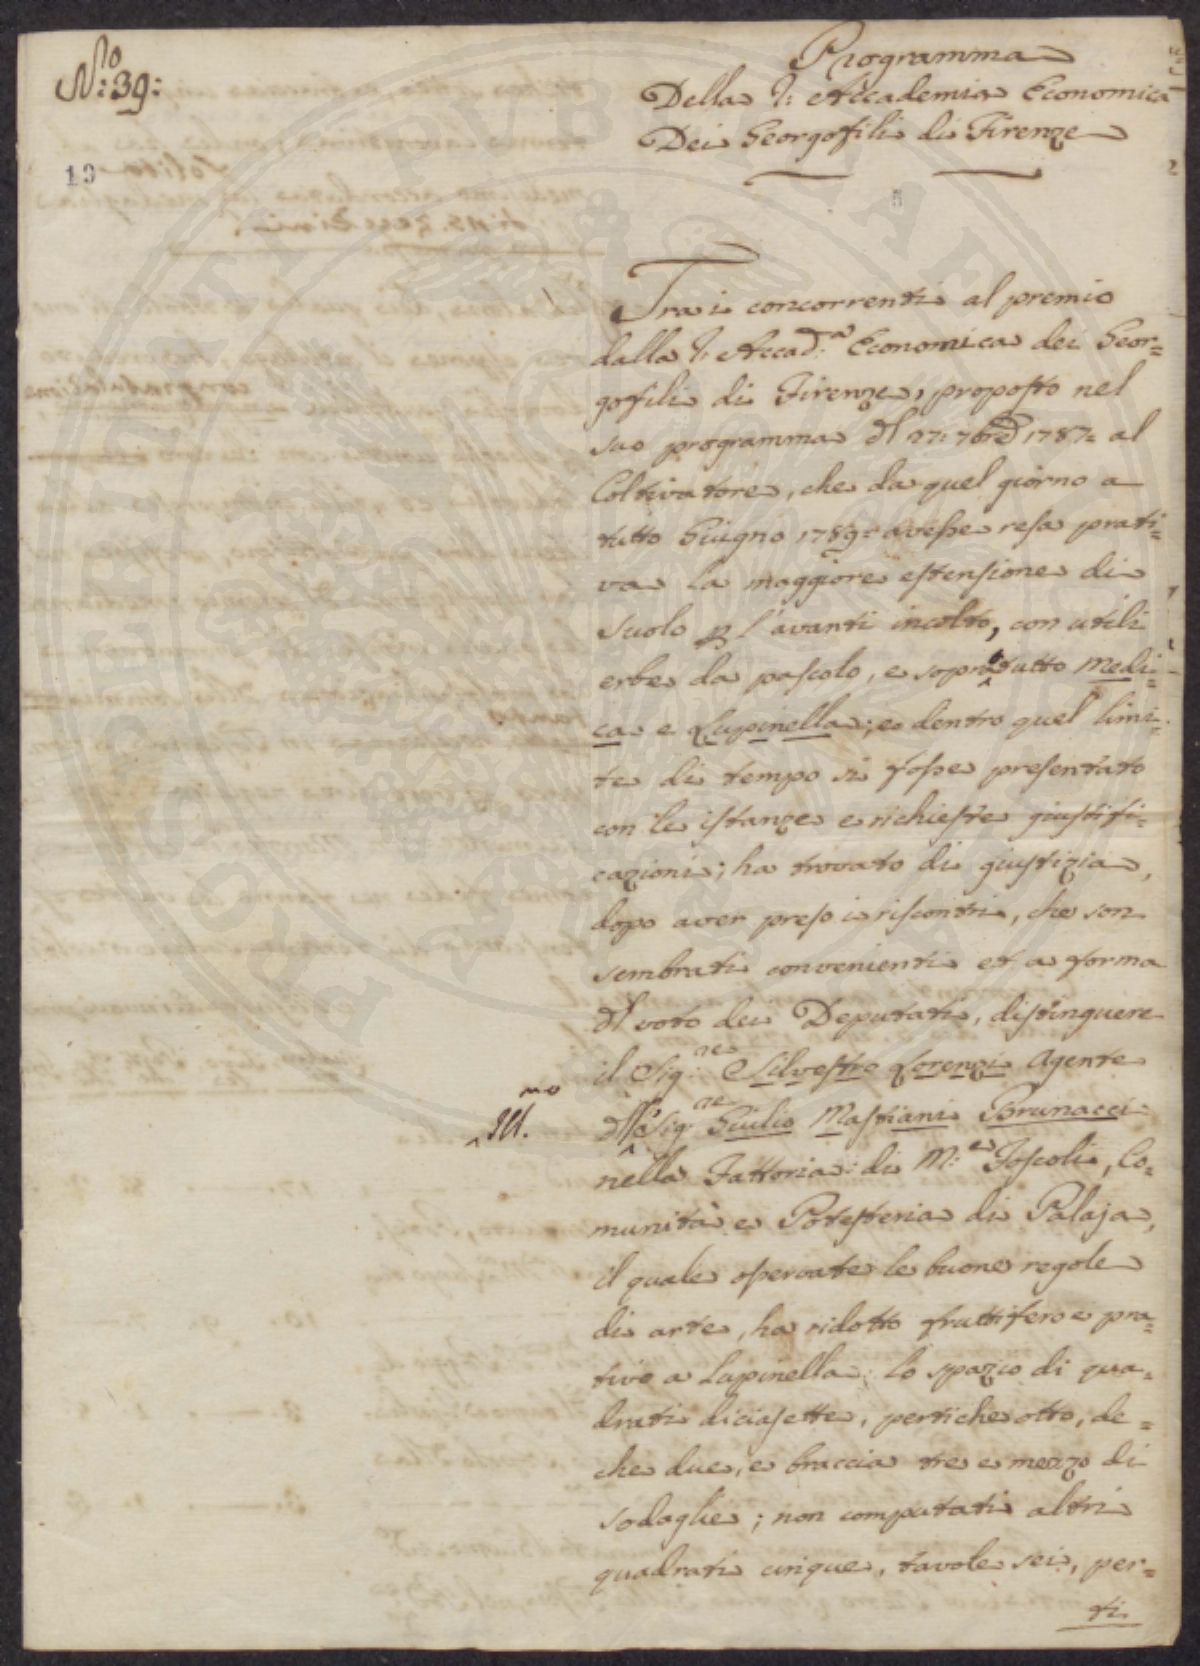 N.o 39:
19
Programma
Della I: Accademia Economica
Dei Georgofili di Firenze
Tra i concorrenti al premio
dalla I: Accad:a Economica dei Geor=
gofili di Firenze, proposto nel
suo programma dl 27: 7bre 1787= al
Coltivatore, che da quel giorno a
tutto Giugno 1789= avesse resa prati=
va la maggiore estensione di
suolo p l'avanti incolto, con utili
erbe da pascolo, e sopratutto Medi=
ca e Lupinella; e dentro quel limi=
te di tempo si fosse presentato
con le istanze e richieste giustifi=
cazioni; ha trovato di giustizia,
dopo aver preso i riscontri, che son
sembrati convenienti et a forma
dl voto dei Deputati, distinguere
il Sig:re Silvestro Lorenzi Agente
dll' Ill.mo Sig:re Giulio Mastiani Brunacci
nella Fattoria di M:e Foscoli, Co=
munità e Potesteria di Palaja,
il quale osservate le buone regole
di arte, ha ridotto fruttifero e pra=
tivo a Lupinella lo spazio di qua=
drati diciasette, pertiche otto, de=
che due, e braccia tre e mezzo di
sodaglie; non computati altri
quadrati cinque, tavole sei, per=
ti